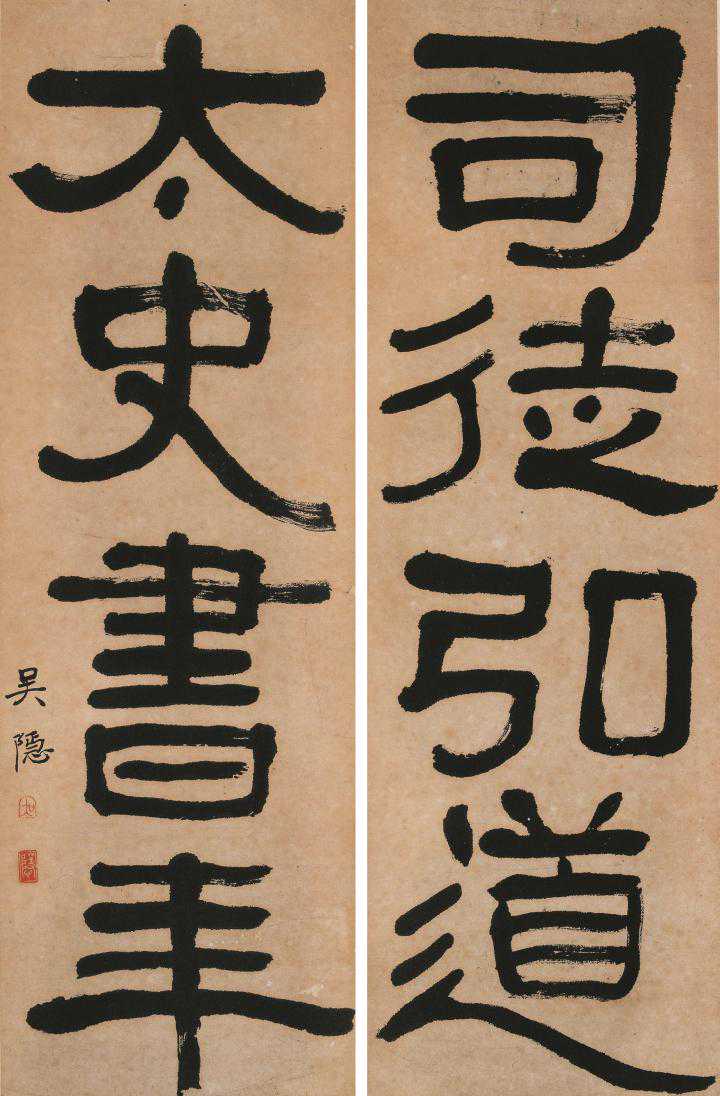 司徒弘道
太史書年
吴隐